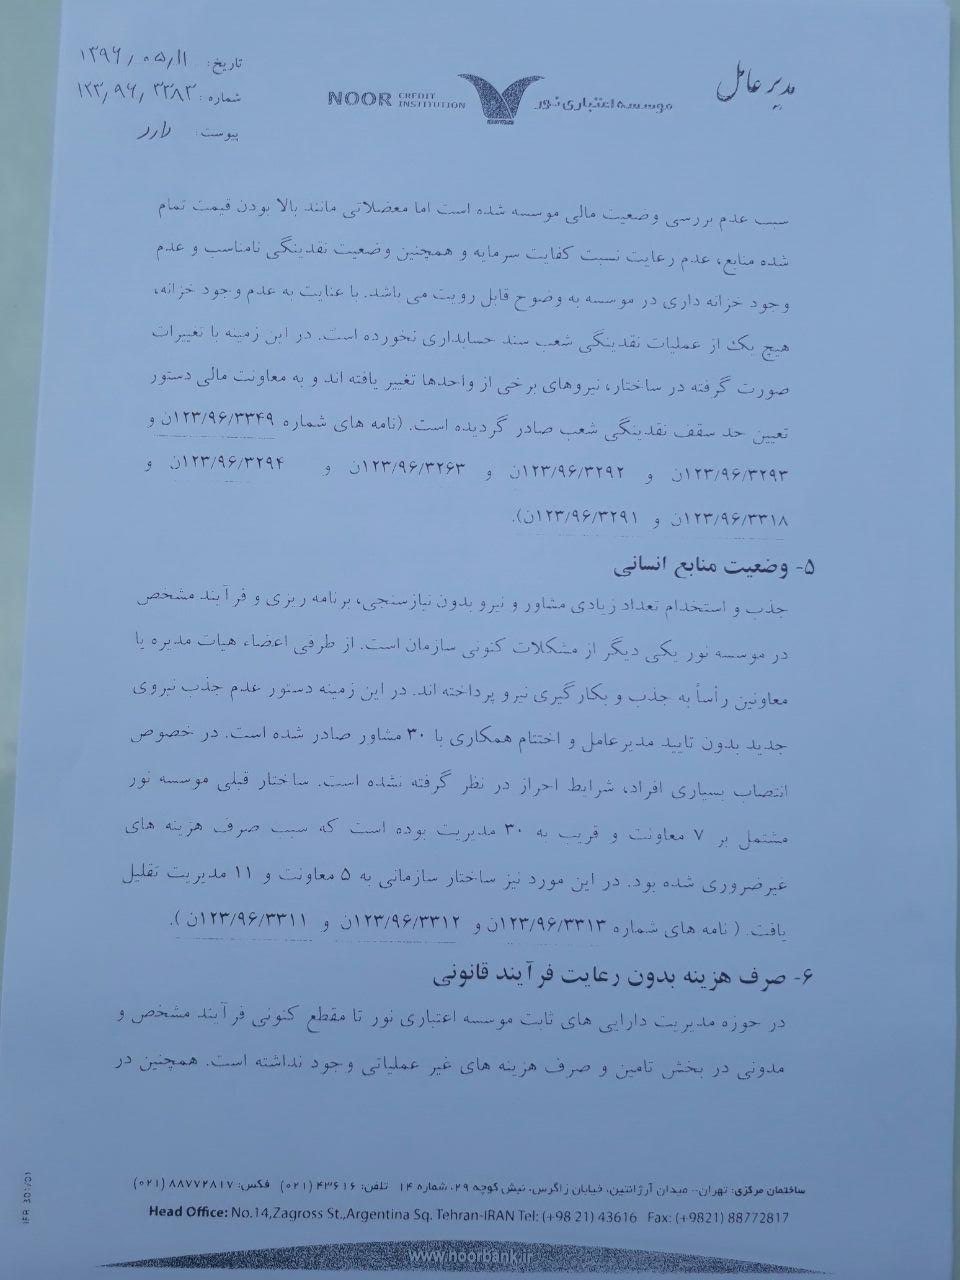 تاریخ: ۱۳۹۶/۰۵/۱۱
شماره: ۱۲۳/۹۶/۳۳۸۳
پیوست: دارد
NOOR CREDIT INSTITUTION
موسسه اعتباری نور
مدیر عامل
سبب عدم بررسی وضعیت مالی موسسه شده است اما معضلاتی مانند بالا بودن قیمت تمام
شده منابع، عدم رعایت نسبت کفایت سرمایه و همچنین وضعیت نقدینگی نامناسب و عدم
وجود خزانه داری در موسسه به وضوح قابل رویت می باشد. با عنایت به عدم وجود خزانه،
هیچ یک از عملیات نقدینگی شعب سند حسابداری نخورده است. در این زمینه با تغییرات
صورت گرفته در ساختار، نیروهای برخی از واحدها تغییر یافته اند و به معاونت مالی دستور
تعیین حد سقف نقدینگی شعب صادر گردیده است. (نامه های شماره ۱۲۳/۹۶/۳۳۴۹ن و
۱۲۳/۹۶/۳۲۹۳ن و ۱۲۳/۹۶/۳۲۹۲ن و ۱۲۳/۹۶/۳۲۶۳ن و ۱۲۳/۹۶/۳۲۹۴ن و
۱۲۳/۹۶/۳۳۱۸ن و ۱۲۳/۹۶/۳۲۹۱ن).
۵- وضعیت منابع انسانی
جذب و استخدام تعداد زیادی مشاور و نیرو بدون نیازسنجی، برنامه ریزی و فرآیند مشخص
در موسسه نور یکی دیگر از مشکلات کنونی سازمان است. از طرفی اعضاء هیات مدیره یا
معاونین رأساً به جذب و بکارگیری نیرو پرداخته اند. در این زمینه دستور عدم جذب نیروی
جدید بدون تایید مدیرعامل و اختتام همکاری با ۳۰ مشاور صادر شده است. در خصوص
انتصاب بسیاری افراد، شرایط احراز در نظر گرفته نشده است. ساختار قبلی موسسه نور
مشتمل بر ۷ معاونت و قریب به ۳۰ مدیریت بوده است که سبب صرف هزینه های
غیرضروری شده بود. در این مورد نیز ساختار سازمانی به ۵ معاونت و ۱۱ مدیریت تقلیل
یافت. ( نامه های شماره ۱۲۳/۹۶/۳۳۱۳ن و ۱۲۳/۹۶/۳۳۱۲ن و ۱۲۳/۹۶/۳۳۱۱ن ).
۶- صرف هزینه بدون رعایت فرآیند قانونی
در حوزه مدیریت دارایی های ثابت موسسه اعتباری نور تا مقطع کنونی فرآیند مشخص و
مدونی در بخش تامین و صرف هزینه های غیر عملیاتی وجود نداشته است. همچنین در
ساختمان مرکزی: تهران- میدان آرژانتین، خیابان زاگرس، نبش کوچه ۲۹، شماره ۱۴ تلفن: ۴۳۶۱۶ (۰۲۱) فکس: ۸۸۷۷۲۸۱۷ (۰۲۱)
Head Office: No.14,Zagross St.,Argentina Sq. Tehran-IRAN Tel: (+98 21) 43616 Fax: (+9821) 88772817
www.noorbank.ir